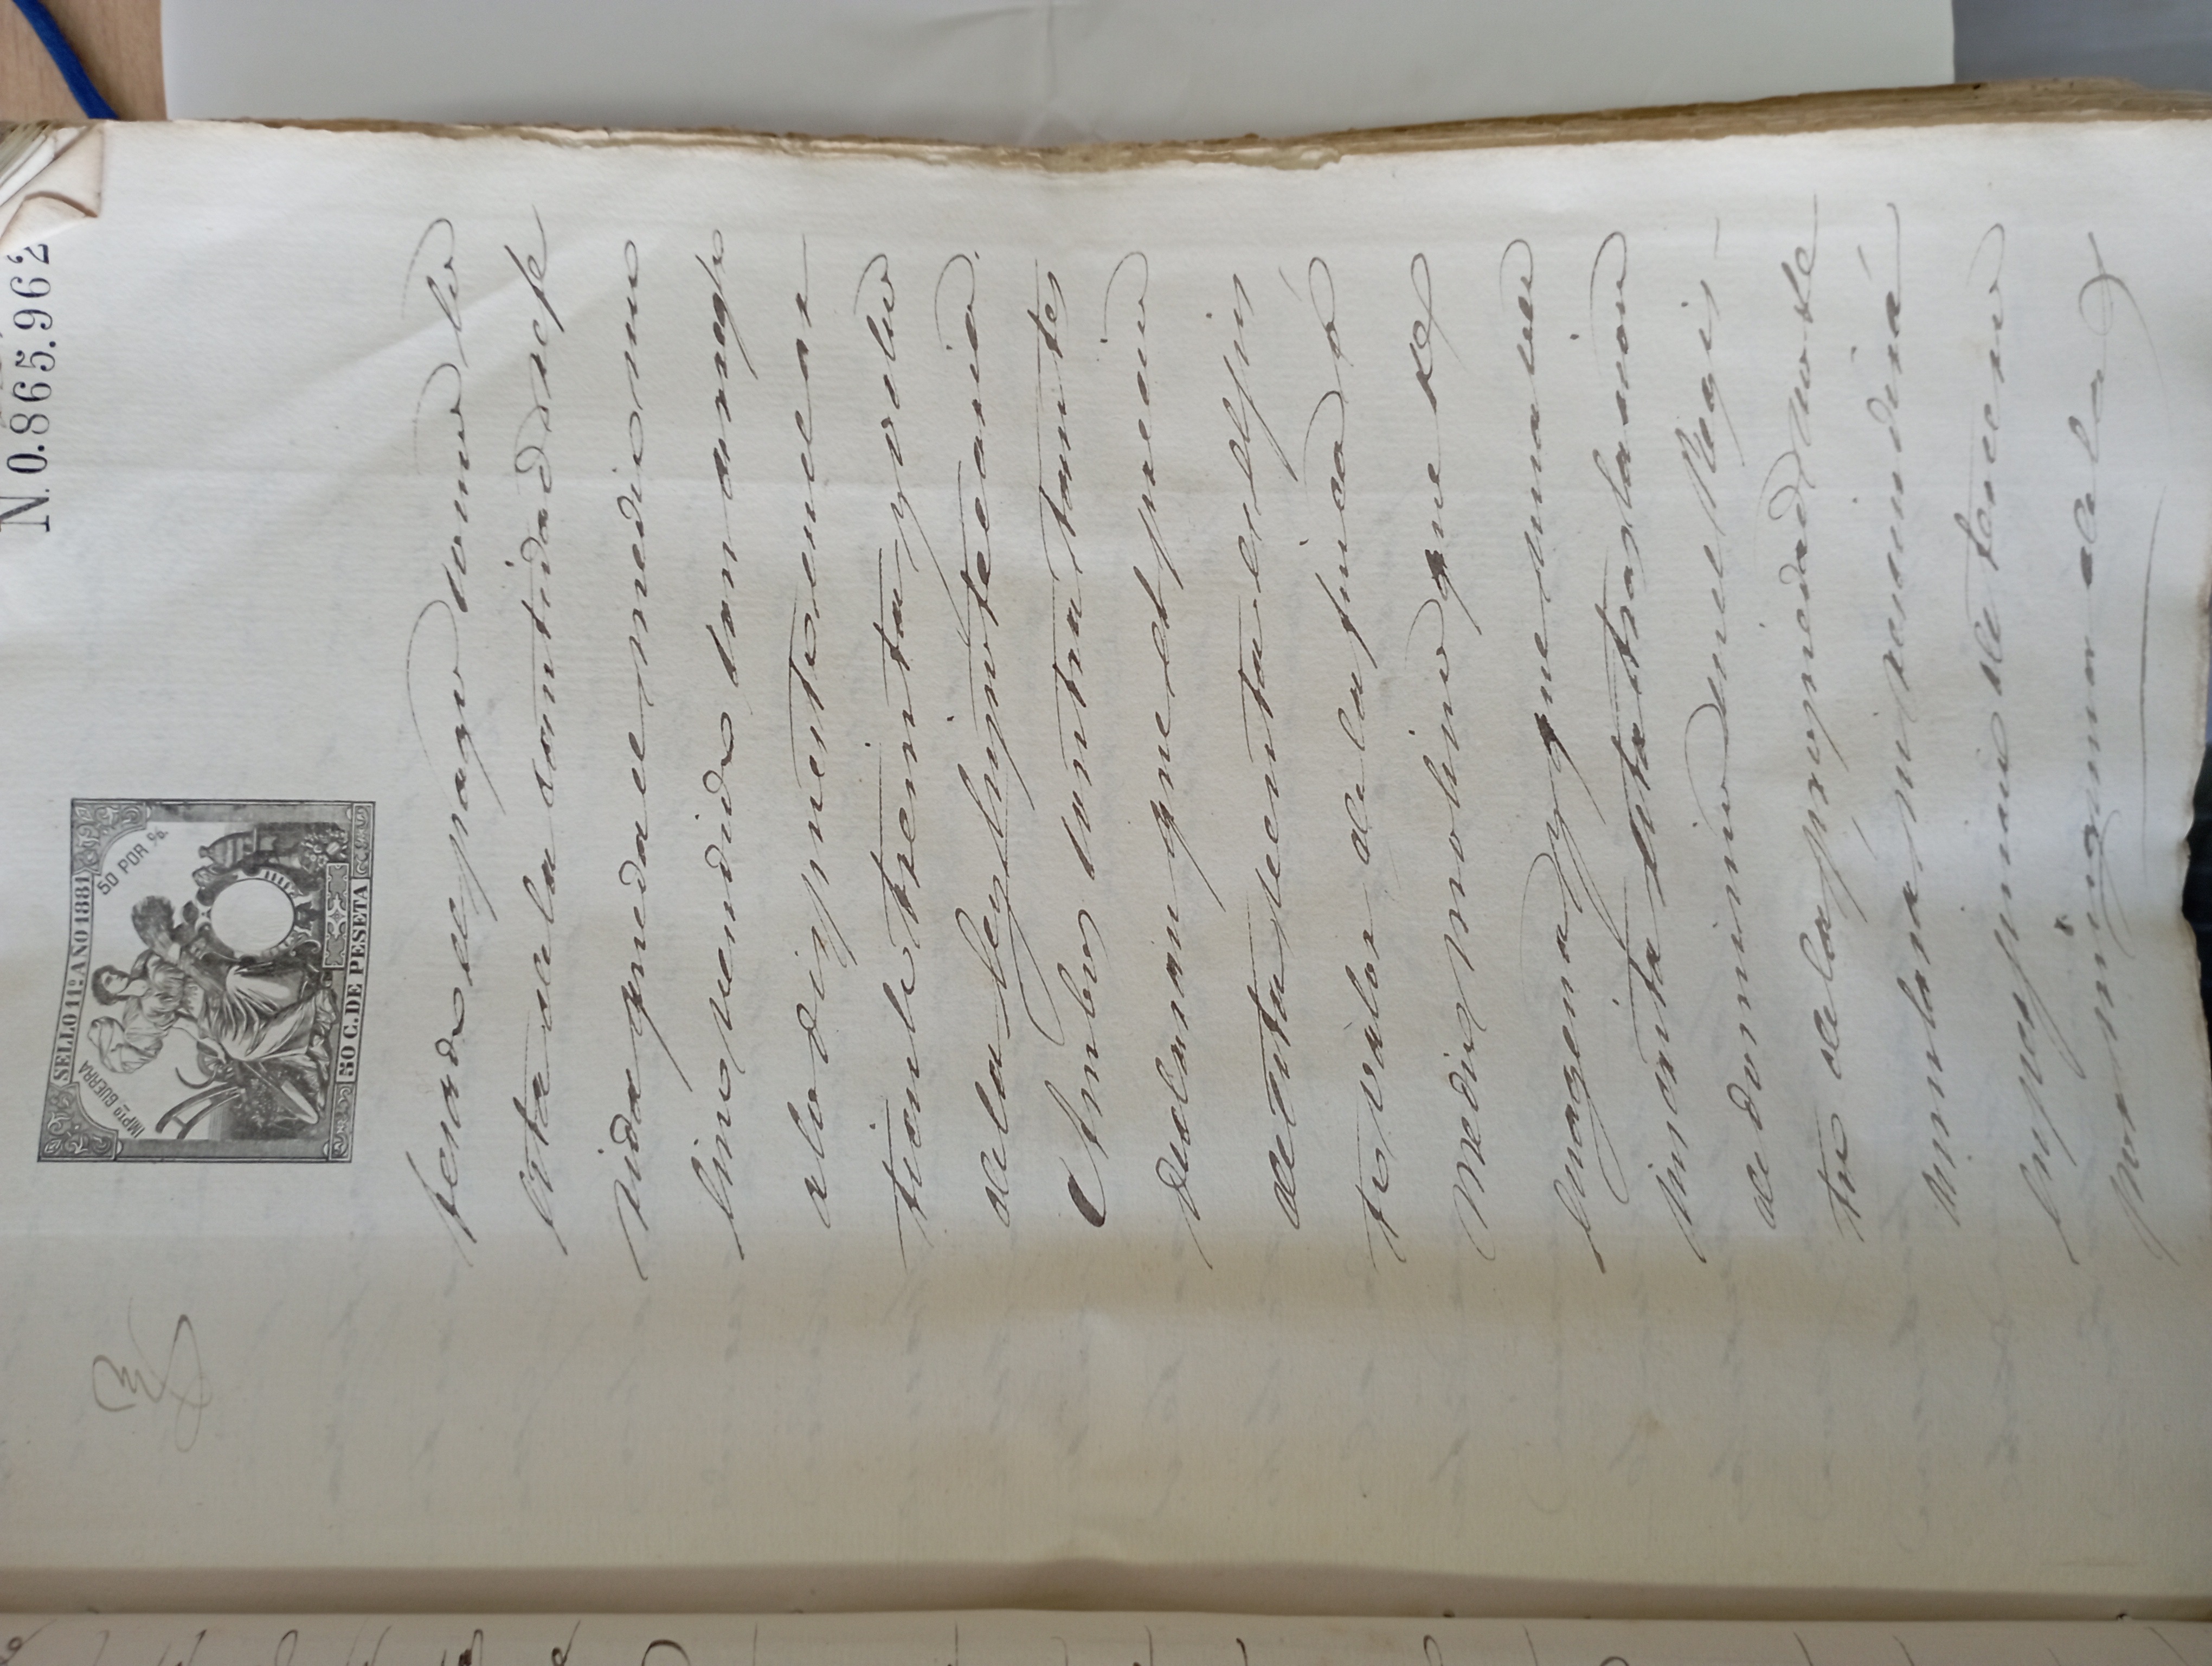 N. 0.865.962
SELLO 11º AÑO 1881
IMPTO GUERRA
50 POR %
50 C. DE PESETA
fesado el pago como lo
esta de la cantidad refe
rida queda el medio mo
lino vendido con arreglo
a lo dispuesto en el ar
ticulo treinta y ocho
de la ley hipotecaria.
Ambos contratantes
declaran que el precio
de esta venta es el jus
to valor de la finca ó
medio molino que se
enagena y que una vez
inscrita esta traslacion
de dominio en el Regis-
tro de la propiedad no se
anulará ni rescindirá
en perjuicio de tercero
por ninguna de la